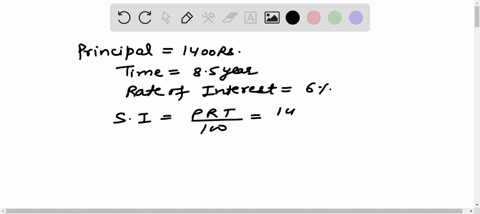 Principal = 1400Rs.
Time = 8.5year
Rate of Interest = 6%
S.I = PRT/100 = 14